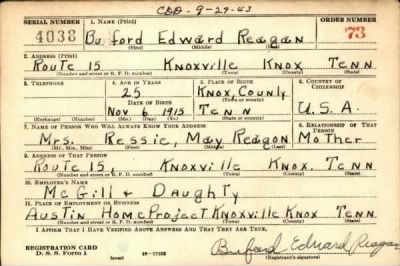 CDD - 9-27-43
SERIAL NUMBER 1. NAME (Print) ORDER NUMBER
4038 Buford Edward Reagan 73
(First) (Middle) (Last)
2. ADDRESS (Print)
Route 15 Knoxville Knox Tenn
(Number and street or R. F. D. number) (Town) (County) (State)
3. TELEPHONE 4. AGE IN YEARS 5. PLACE OF BIRTH 6. COUNTRY OF CITIZENSHIP
25 Knox, County
(Town or county)
DATE OF BIRTH
Nov 6 1915 Tenn U.S.A.
(Exchange) (Number) (Mo.) (Day) (Yr.) (State or country)
7. NAME OF PERSON WHO WILL ALWAYS KNOW YOUR ADDRESS 8. RELATIONSHIP OF THAT PERSON
Mrs. Ressie, May Reagon Mother
(Mr., Mrs., Miss) (First) (Middle) (Last)
9. ADDRESS OF THAT PERSON
Route 15, Knoxville Knox. Tenn
(Number and street or R. F. D. number) (Town) (County) (State)
10. EMPLOYER'S NAME
McGill & Daughty
11. PLACE OF EMPLOYMENT OR BUSINESS
Austin Home Project Knoxville Knox Tenn
(Number and street or R. F. D. number) (Town) (County) (State)
I AFFIRM THAT I HAVE VERIFIED ABOVE ANSWERS AND THAT THEY ARE TRUE.
REGISTRATION CARD
D. S. S. Form 1 (over) 16-17105 Buford Edward Reagan
(Registrant's signature)